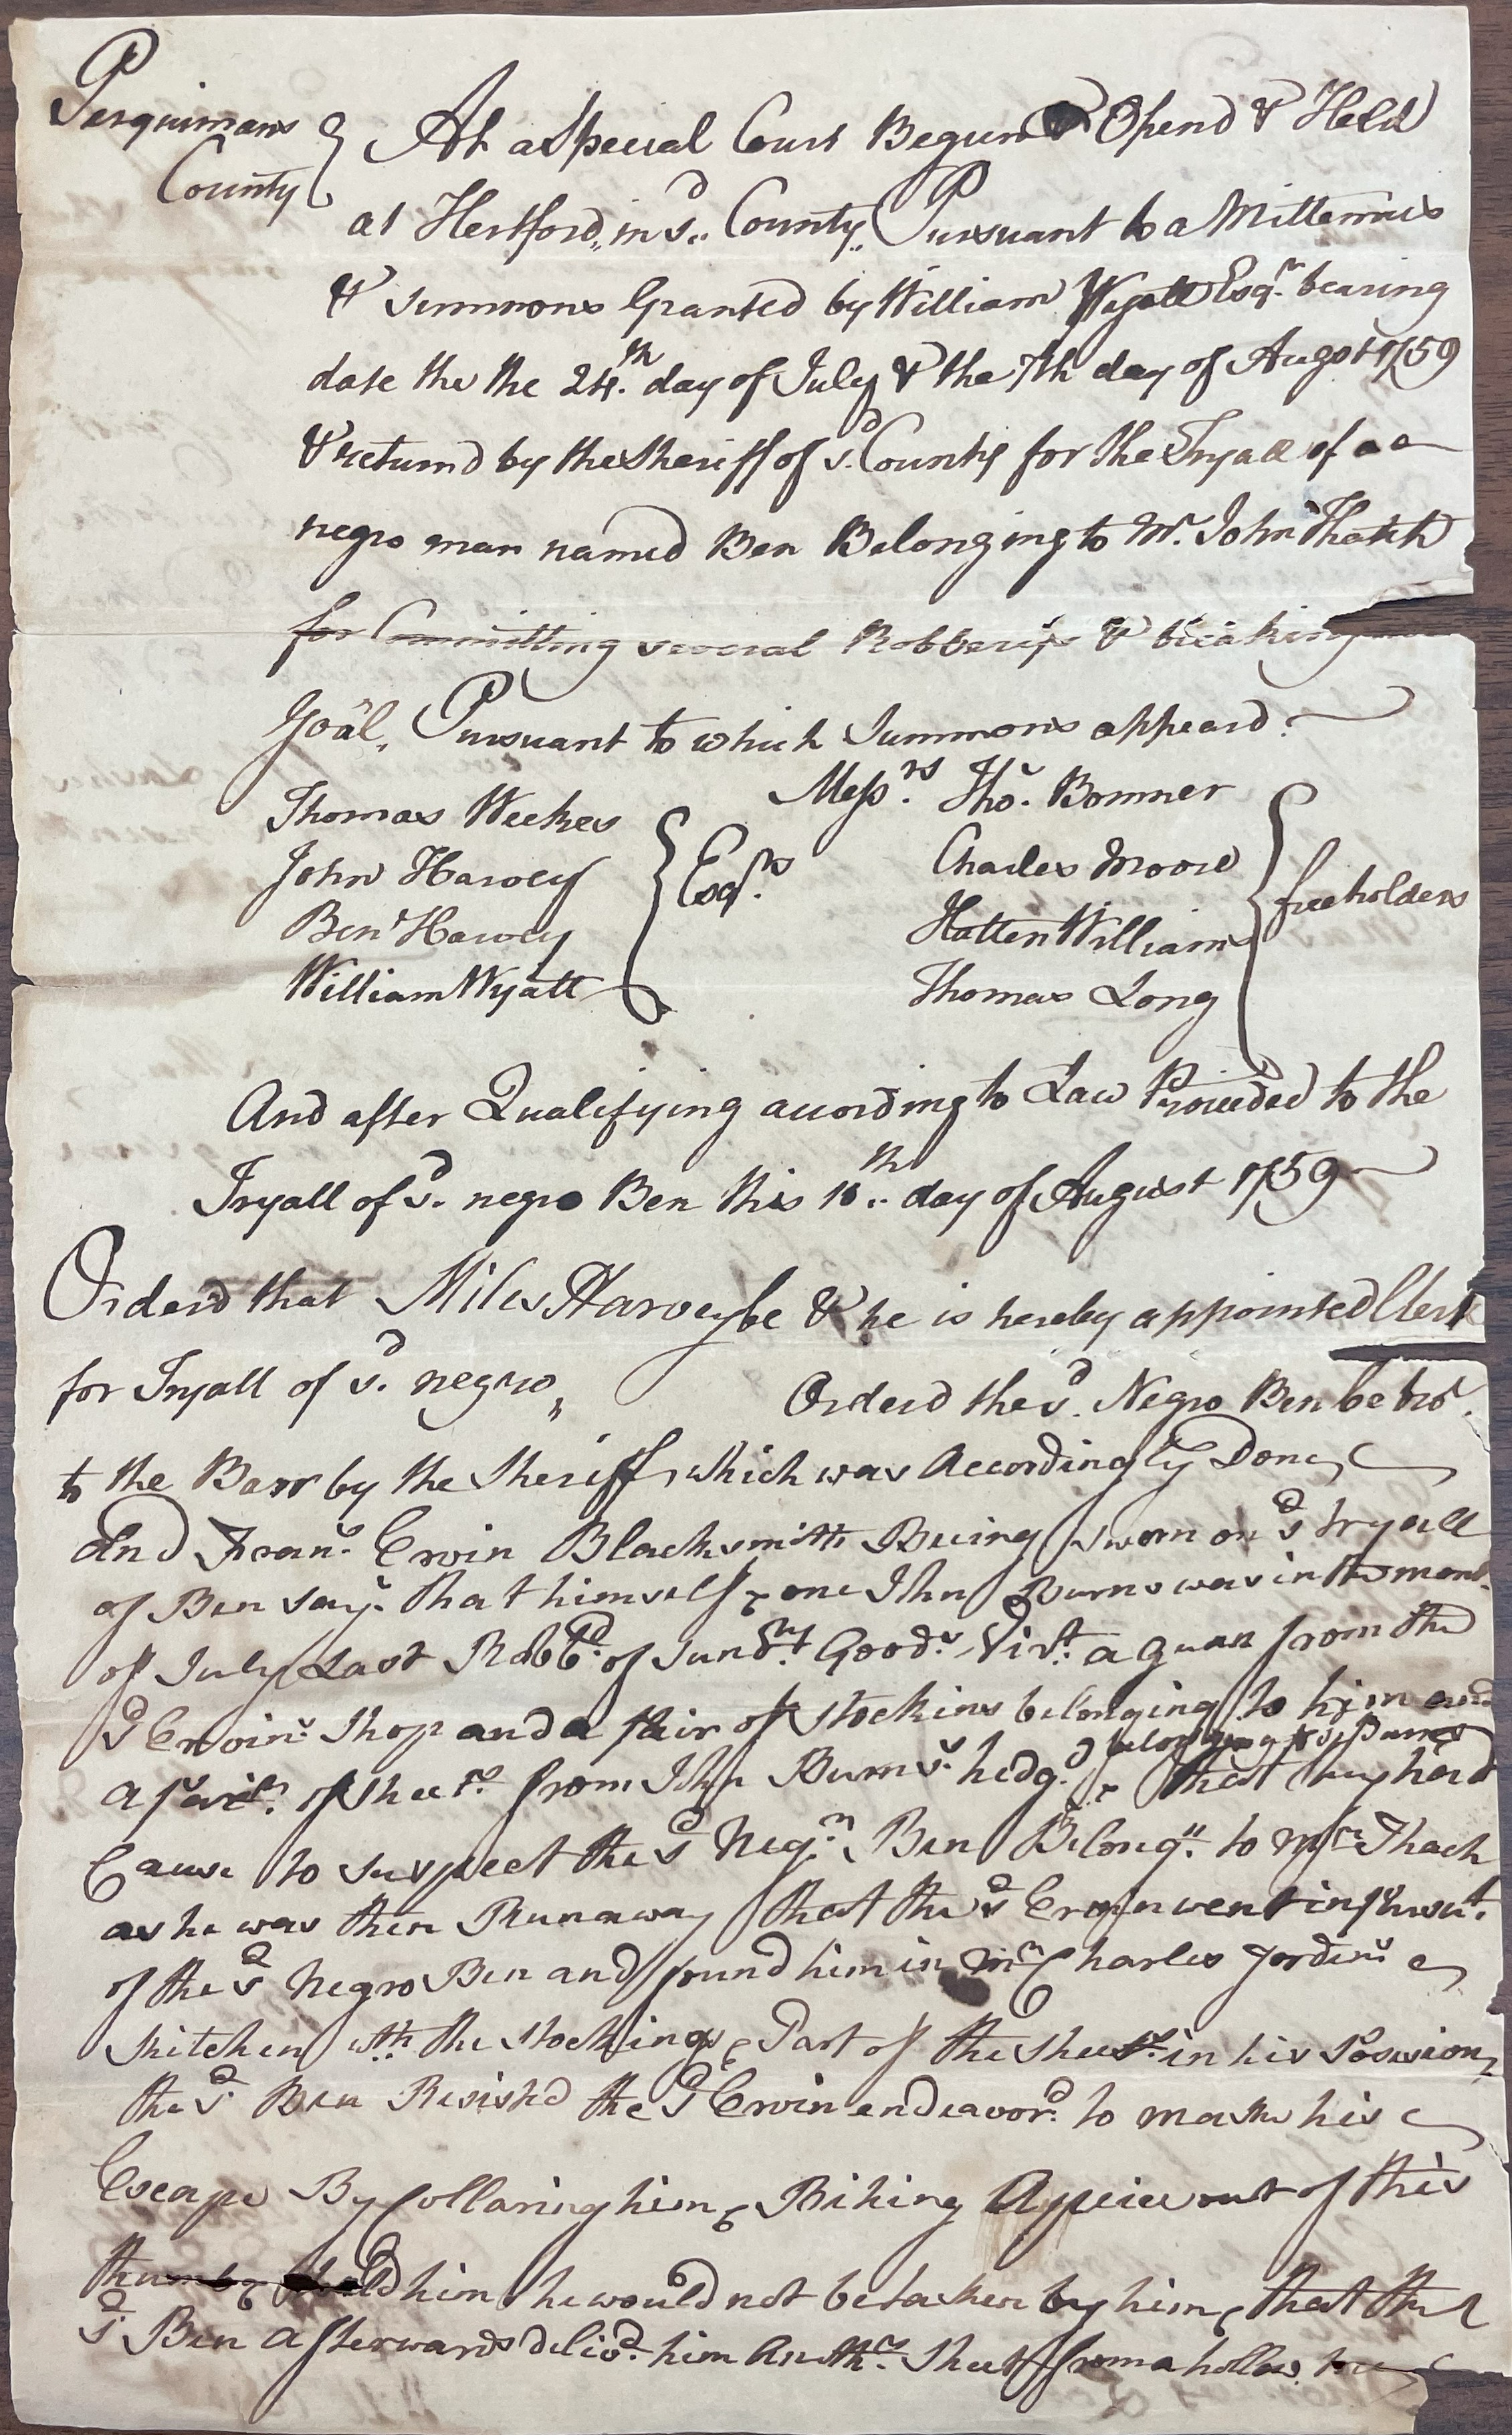 Perquimans
County
At a Special Court Begun & Opend & Held
at Hertford, in sd. County, Pursuant to a Mittemus
& summons Granted by William Wyatt Esqr. bearing
date the the 24th. day of July & the 7th day of Augst 1759
& returnd by the Sheriff of sd. County for the Tryall of a a
negro man named Ben Belonging to Mr. John Thatch
for Committing several Robberys & breaking
Goal, Pursuant to which Summons appeard.
Thomas Weekes
John Harvey
Benj Harvey
William Wyatt
Esqrs.
Messrs. Tho. Bonner
Charles Moore
Hatten Williams
Thomas Long
freeholders
And after Qualifying acording to Law Proceded to the
Tryall of sd. negro Ben this 10th.. day of August 1759
Orderd that Miles Harvey be & he is hereby appointed Clerk
for Tryall of sd. negro,,
Orderd the sd. Negro Ben be bro.
to the Barr by the Sheriff, which was Accordingly Done,
And Frans. Ervin Blacksmith Being Sworn on sd tryall
of Ben says. that himself & one John Burns was in the mont.
of July Last Robbd. of Sundry. Goods. Vizt. a guan from the
sd Ervins. Shop and a pair of Stockins belonging to him and
a pair. of Sheets. from John Burns. hedge. belonging to sd Burns & that they had
Cause to suspect the sd Negro. Ben Belongg. to Mr Thach
as he was then Runaway that the sd Ervin went in pursut.
of the sd Negro Ben and found him in Mr Charles Jordins
kitchen wth. the Stockings & Part of the Sheet. in his Possesion,
the sd. Ben Resistd the sd Ervin endeavord. to make his
Escape By Collaring him & Biting A peice out of this
thumb & told him he would not be taken by him, that the
sd Ben afterwards delivd. him anothr. Sheet from a hollow tree